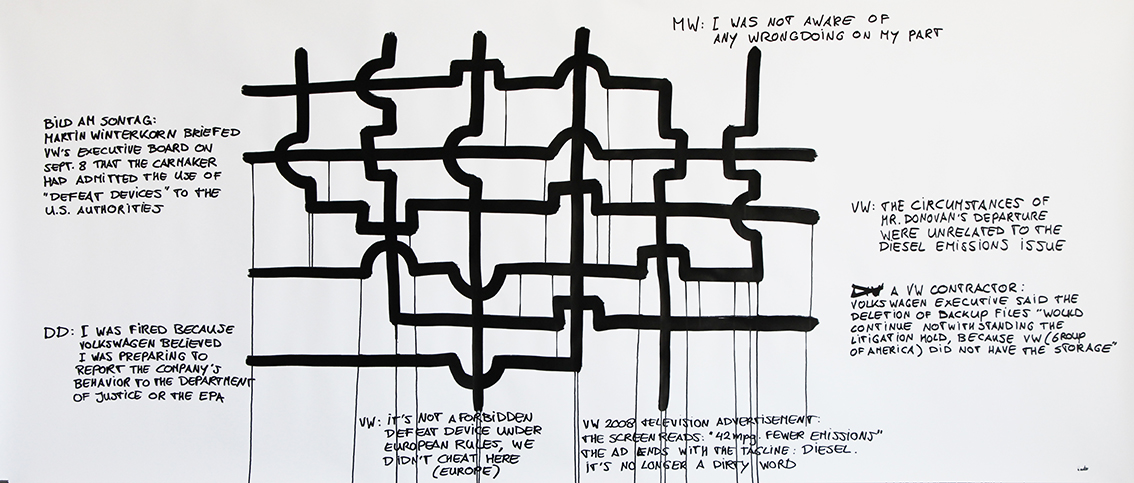 MW: I WAS NOT AWARE OF
ANY WRONGDOING ON MY PART
BILD AM SONTAG:
MARTIN WINTERKORN BRIEFED
VW'S EXECUTIVE BOARD ON
SEPT. 8 THAT THE CARMAKER
HAD ADMITTED THE USE OF
"DEFEAT DEVICES" TO THE
U.S. AUTHORITIES
VW: THE CIRCUMSTANCES OF
MR. DONOVAN'S DEPARTURE
WERE UNRELATED TO THE
DIESEL EMISSIONS ISSUE
A VW CONTRACTOR:
VOLKSWAGEN EXECUTIVE SAID THE
DELETION OF BACKUP FILES "WOULD
CONTINUE NOTWITHSTANDING THE
LITIGATION HOLD, BECAUSE VW (GROUP
OF AMERICA) DID NOT HAVE THE STORAGE"
DD: I WAS FIRED BECAUSE
VOLKSWAGEN BELIEVED
I WAS PREPARING TO
REPORT THE COMPANY'S
BEHAVIOR TO THE DEPARTMENT
OF JUSTICE OR THE EPA
VW: IT'S NOT A FORBIDDEN
DEFEAT DEVICE UNDER
EUROPEAN RULES, WE
DIDN'T CHEAT HERE
(EUROPE)
VW 2008 TELEVISION ADVERTISEMENT:
THE SCREEN READS: "42mpg. FEWER EMISSIONS"
THE AD ENDS WITH THE TAGLINE: DIESEL.
IT'S NO LONGER A DIRTY WORD